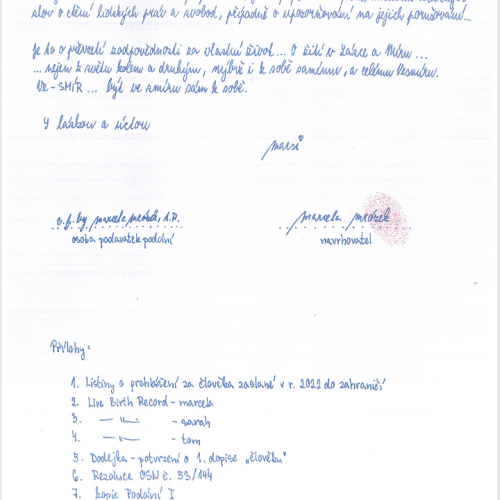 slov o ctění lidských práv a svobod, případně o upozorňování na jejich porušování...
Je to o převzetí zodpovědnosti za vlastní život... O žití v Lásce a Míru...
...nejen k světu kolem a druhým, nýbrž i k sobě samému, a celému Vesmíru.
Ve-SMÍR... být ve smíru sám k sobě.
S láskou a úctou
marsi
c.f. by marcela mrózek, A.R.
osoba podavatek podání
marcela mrózek
navrhovatel
Přílohy:
1. Listiny o prohlášení za člověka zaslané v r. 2022 do zahraničí
2. Live Birth Record - marcela
3. —"— - sarah
4. —"— - tom
5. Dodejka - potvrzení o 1. dopise „člověku"
6. Rezoluce OSN č. 53/144
7. kopie Podání I